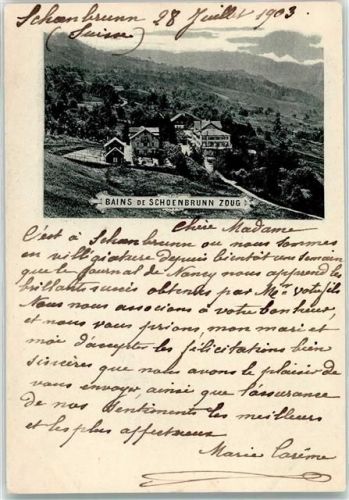 Schœnbrunn 28 Juillet 1903
(Suisse)
BAINS DE SCHOENBRUNN ZOUG
Chère Madame
C'est à Schœnbrunn ou nous sommes
en villégiature depuis bientôt une semaine
que le Journal de Nancy nous apprend les
brillants succès obtenus par Mr votre fils
Nous nous associons à votre bonheur,
et nous vous prions, mon mari et
moi d'accepter les félicitations bien
sincères que nous avons le plaisir de
vous envoyer, ainsi que l'assurance
de nos sentiments les meilleurs
et les plus affectueux
Marie Carême